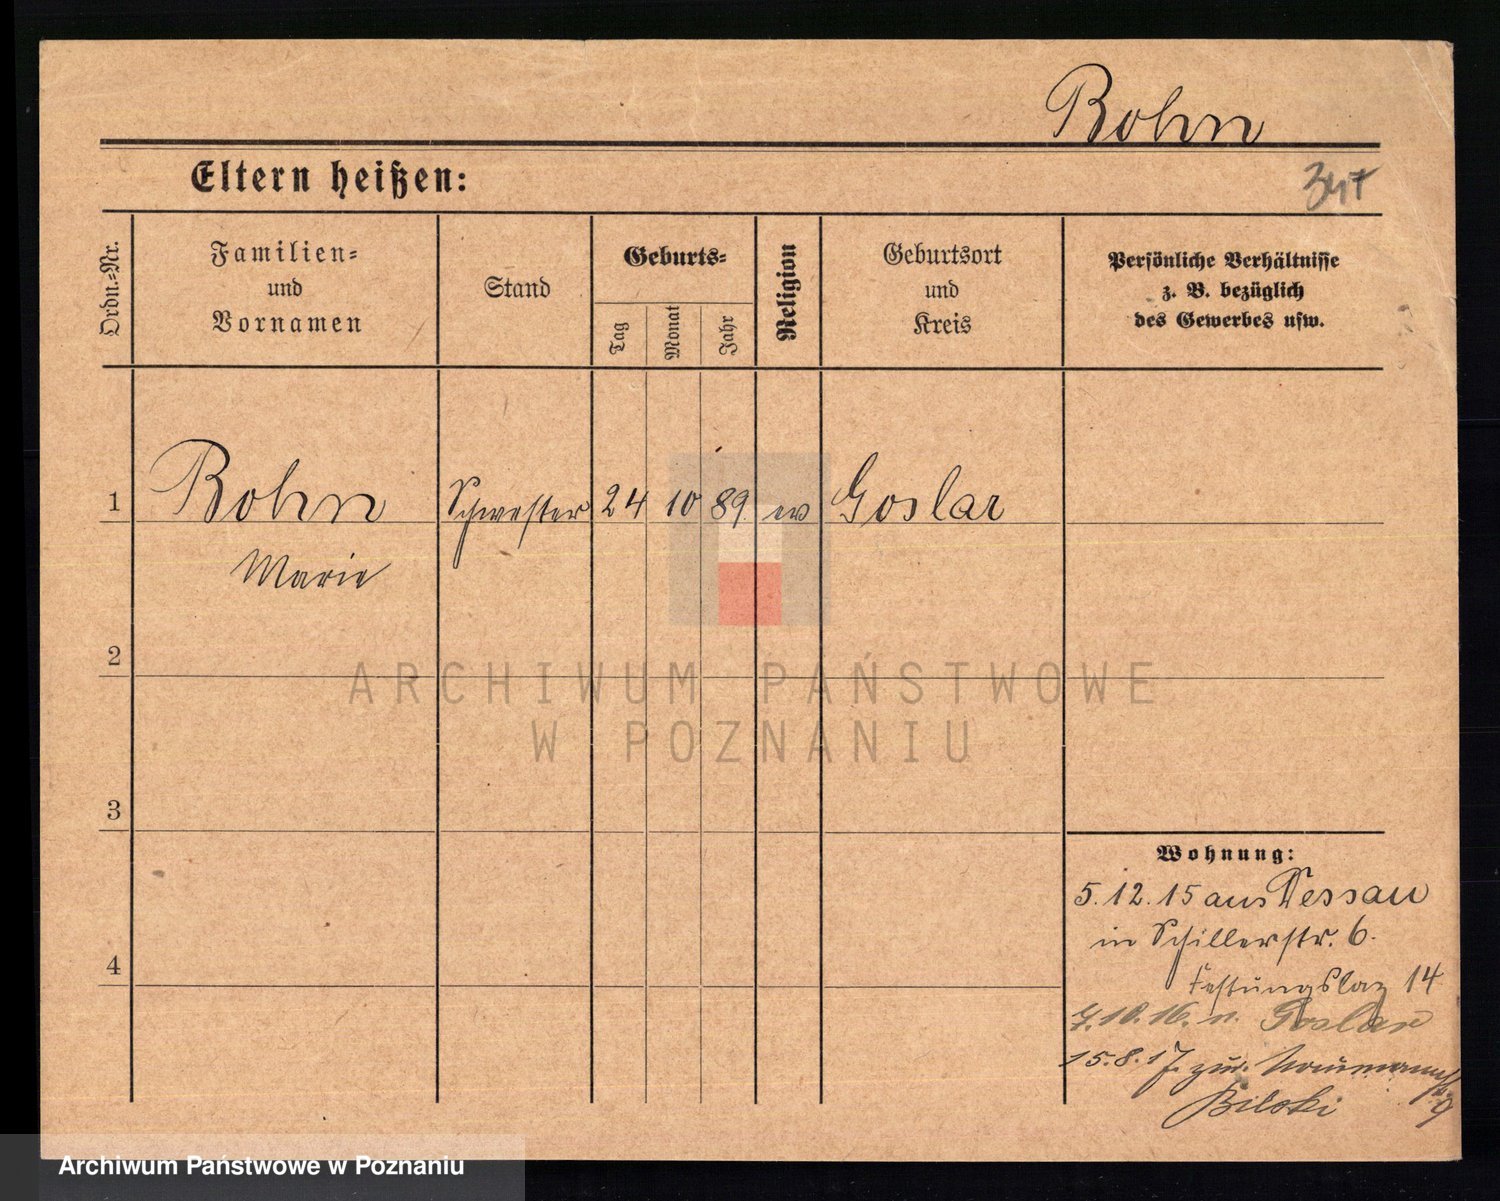 Bohn
347
Eltern heißen:
Ordn.-Nr.
Familien-
und
Vornamen
Stand
Geburts-
Tag
Monat
Jahr
Religion
Geburtsort
und
Kreis
Persönliche Verhältnisse
z. B. bezüglich
des Gewerbes usw.
1 Bohn Schwester 24 10 89 ev Goslar
Marie
2
ARCHIWUM PAŃSTWOWE
W POZNANIU
3
Wohnung:
5.12.15 aus Dessau
in Schillerstr. 6.
4
Festungslaz 14
7.10.16. n. Goslar
15.8.17 zur. Naumannstr 9
Biloki
Archiwum Państwowe w Poznaniu